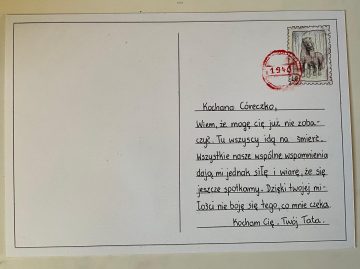 1940
Kochana Córeczko,
Wiem, że mogę cię już nie zoba-
czyć. Tu wszyscy idą na śmierć.
Wszystkie nasze wspólne wspomnienia
dają mi jednak siłę i wiarę, że się
jeszcze spotkamy. Dzięki twojej mi-
łości nie boję się tego, co mnie czeka.
Kocham Cię. Twój Tata.